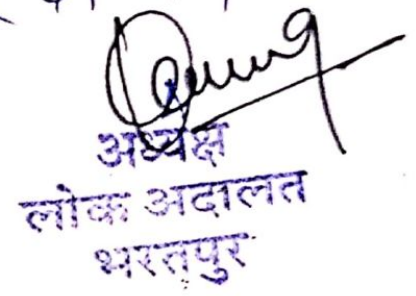 अध्यक्ष
लोक अदालत
भरतपुर